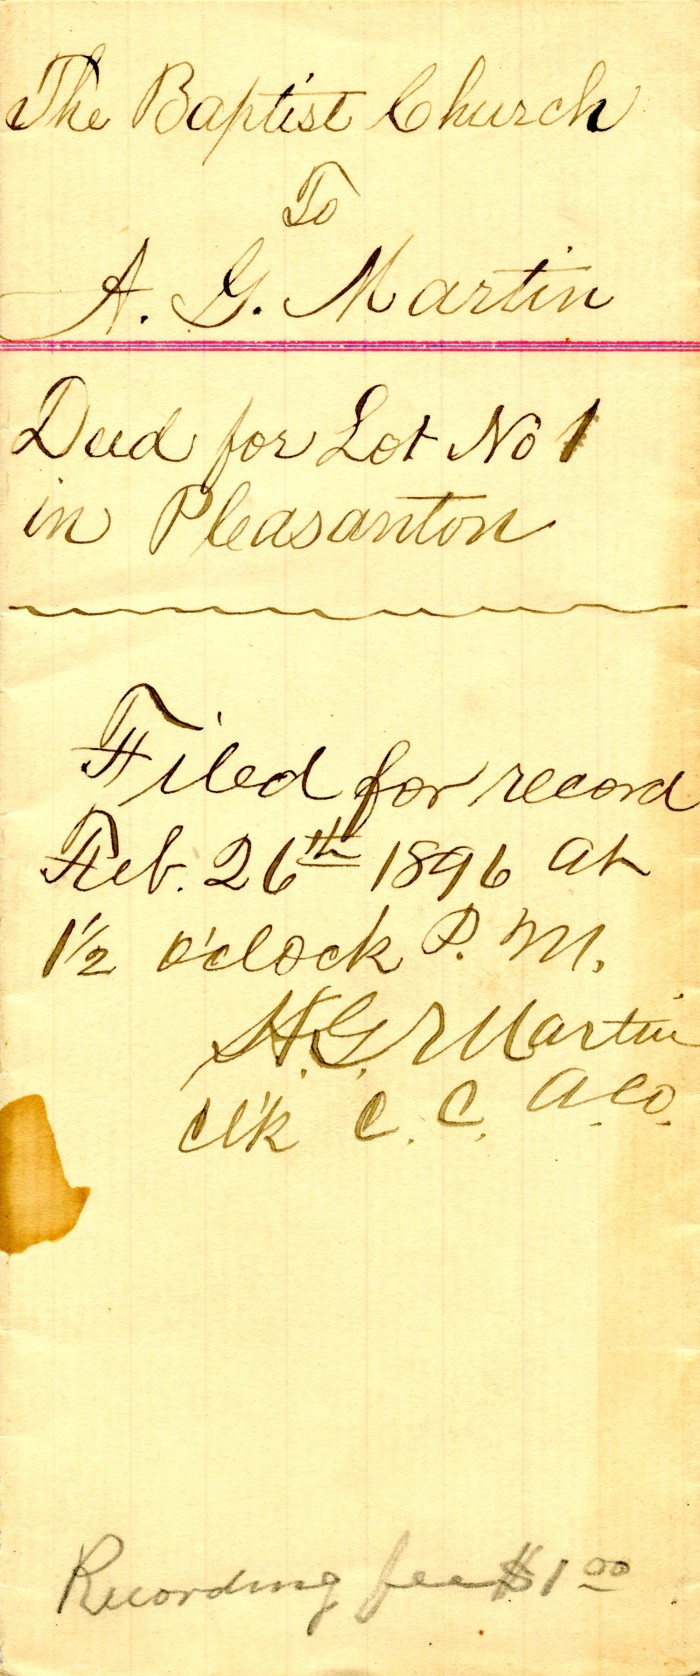 The Baptist Church
To
A. G. Martin
Deed for Lot No 1
in Pleasanton
Filed for record
Feb. 26th 1896 at
1½ o'clock P. M.
H. G. Martin
Cl'k C. C. A. Co.
Recording fee $1 00